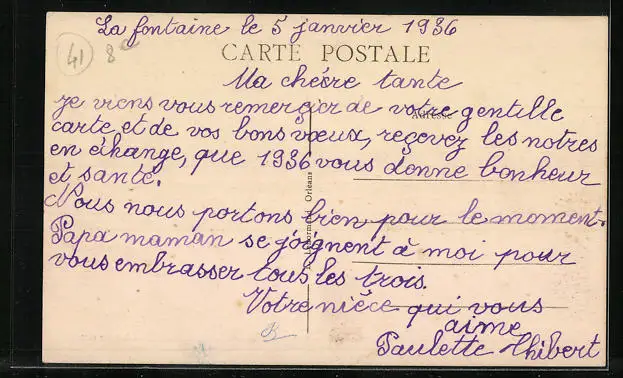 La fontaine le 5 janvier 1936
41 8
CARTE POSTALE
Ma cheère tante
je viens vous remerçier de votre gentille
Adresse
carte et de vos bons vœux, reçevez les notres
en échange, que 1936 vous donne bonheur
et santé.
Nous nous portons bien pour le moment.
Papa maman se joignent à moi pour
vous embrasser tous les trois.
Votre nièce qui vous
aime
Paulette Thibert
Orléans